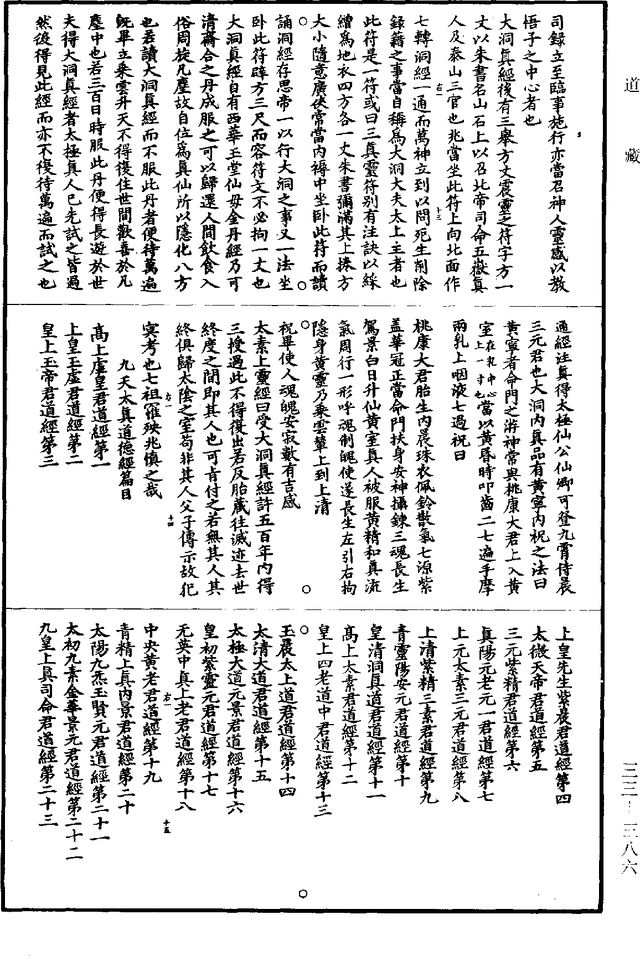 道藏
三三—三八六
司錄立至臨事施行亦當召神人靈感以教
悟子之中心者也
大洞真經後有三舉方丈震靈之符字方一
丈以朱書名山石上以召北帝司命五嶽真
人及泰山三官也兆當坐此符上向北面作
七轉洞經一通而萬神立到以問死生削除
錄籍之事當自稱為大洞大夫太上主者也
此符是一符或曰三真靈符別有注訣以綵
繒為地衣四方各一丈朱書彌滿其上揲方
大小隨意廣狹常當內褥中坐卧此符而讀
誦洞經存思帝一以行大洞之事又一法坐
卧此符暐方三尺而容符文不必拘一丈也
大洞真經自有西華王堂仙母金丹經乃可
清齋合之丹成服之可以歸還人間飲食入
俗周旋凡塵故自位為真仙所以隱化八方
也若讀大洞真經而不服此丹者便待萬遍
既畢立乘雲升天不得後住世間歡喜於凡
塵中也若三百日時服此丹便得長遊於世
夫得大洞真經者太極真人已先試之皆過
然後得見此經而亦不復待萬遍而試之也
通經注真得太極仙公仙卿可登九霄侍晨
三元君也大洞內真品有黃寧內祝之法曰
黃寧者命門之游神常與桃康大君上入黃
室在乳中心上一寸也當以黃昏時叩齒二七遍手摩
兩乳上咽液七過祝曰
桃康大君胎生內晨珠衣佩鈴散氣七源紫
蓋華冠正當命門扶身安神攝鍊三魂長生
駕景白日升仙黃室真人被服黃精和真流
氣周行一形呼魂制魄使遂長生左引右拘
隱身黃靈乃乘雲輦上到上清
祝畢使人魂魄安寂歘有吉感
太素上靈經曰受大洞真經許五百年內得
三授過此不得復出若反胎藏往滅迹去世
終度之間即其人也可肯付之若無其人其
終俱歸太陰之室苟非其人父子傳示故犯
寞考也七祖罹殃兆慎之哉
九天太真道德經篇目
高上虛皇君道經第一
上皇玉虛君道經第二
皇上玉帝君道經第三
上皇先生紫晨君道經第四
太微天帝君道經第五
三元紫精君道經第六
真陽元老元一君道經第七
上元太素三元君道經第八
上清紫精三素君道經第九
青靈陽安元君道經第十
皇清洞真道君道經第十一
高上太素君道經第十二
皇上四老道中君道經第十三
玉晨太上道君道經第十四
太清大道君道經第十五
太極大道元景君道經第十六
皇初紫靈元君道經第十七
无英中真上老君道經第十八
中央黃老君道經第十九
青精上真內景君道經第二十
太陽九炁玉賢元君道經第二十一
太初九素金華景元君道經第二十二
九皇上真司命君道經第二十三